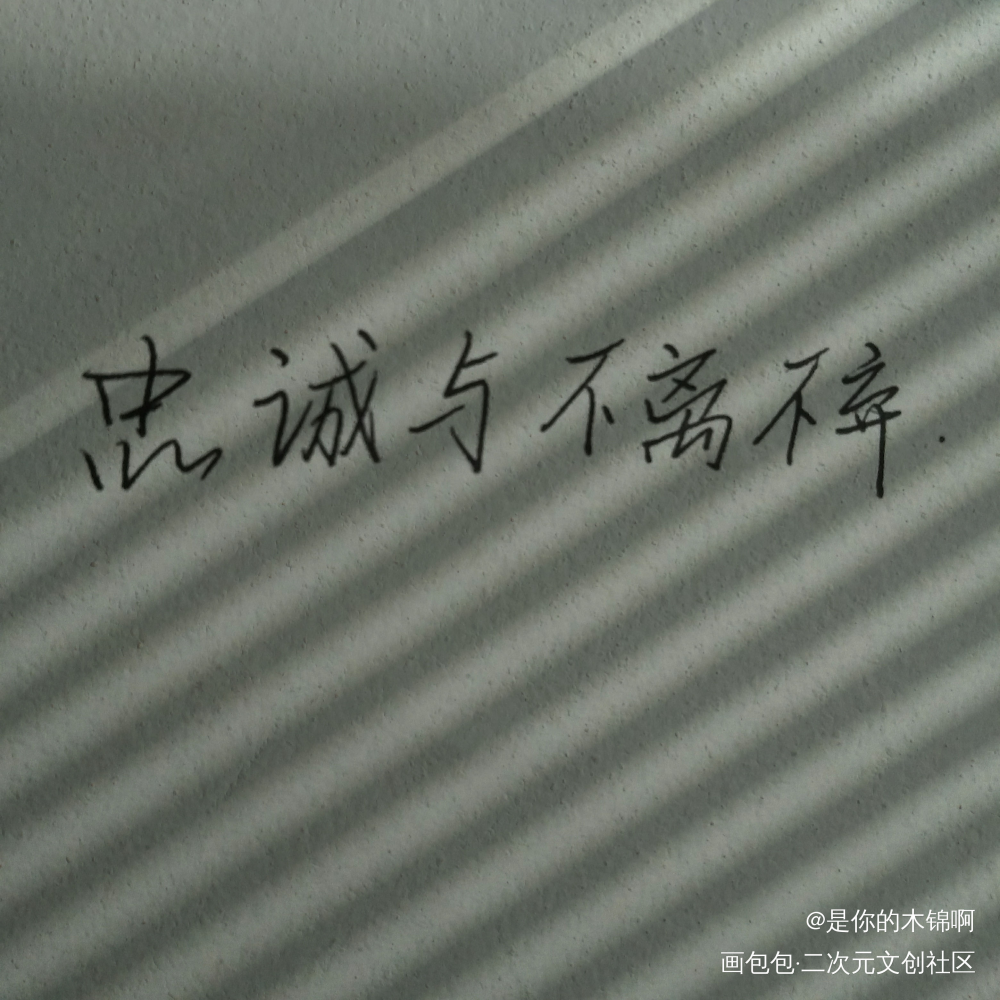 忠诚与不离不弃.
@是你的木锦啊
画包包·二次元文创社区